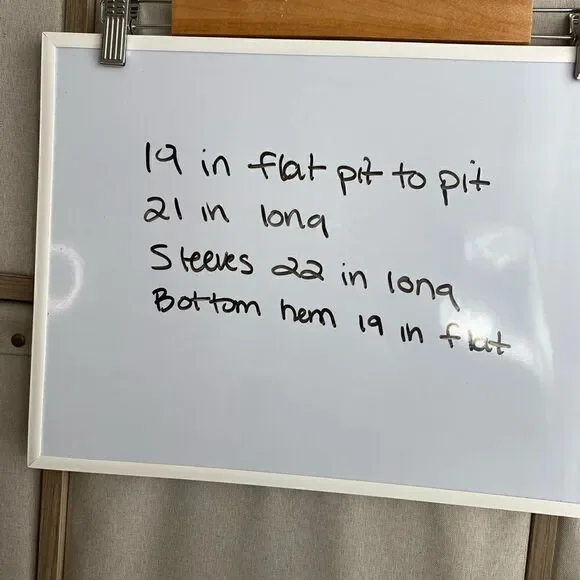 19 in flat pit to pit
21 in long
Sleeves 22 in long
Bottom hem 19 in flat